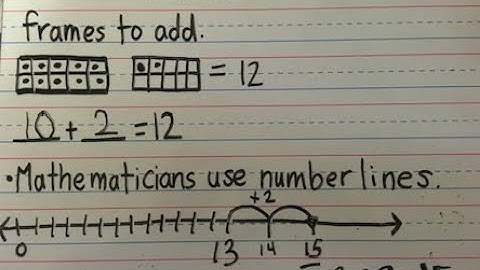 frames to add.
= 12
10 + 2 = 12
•Mathematicians use number lines.
+2
0 13 14 15